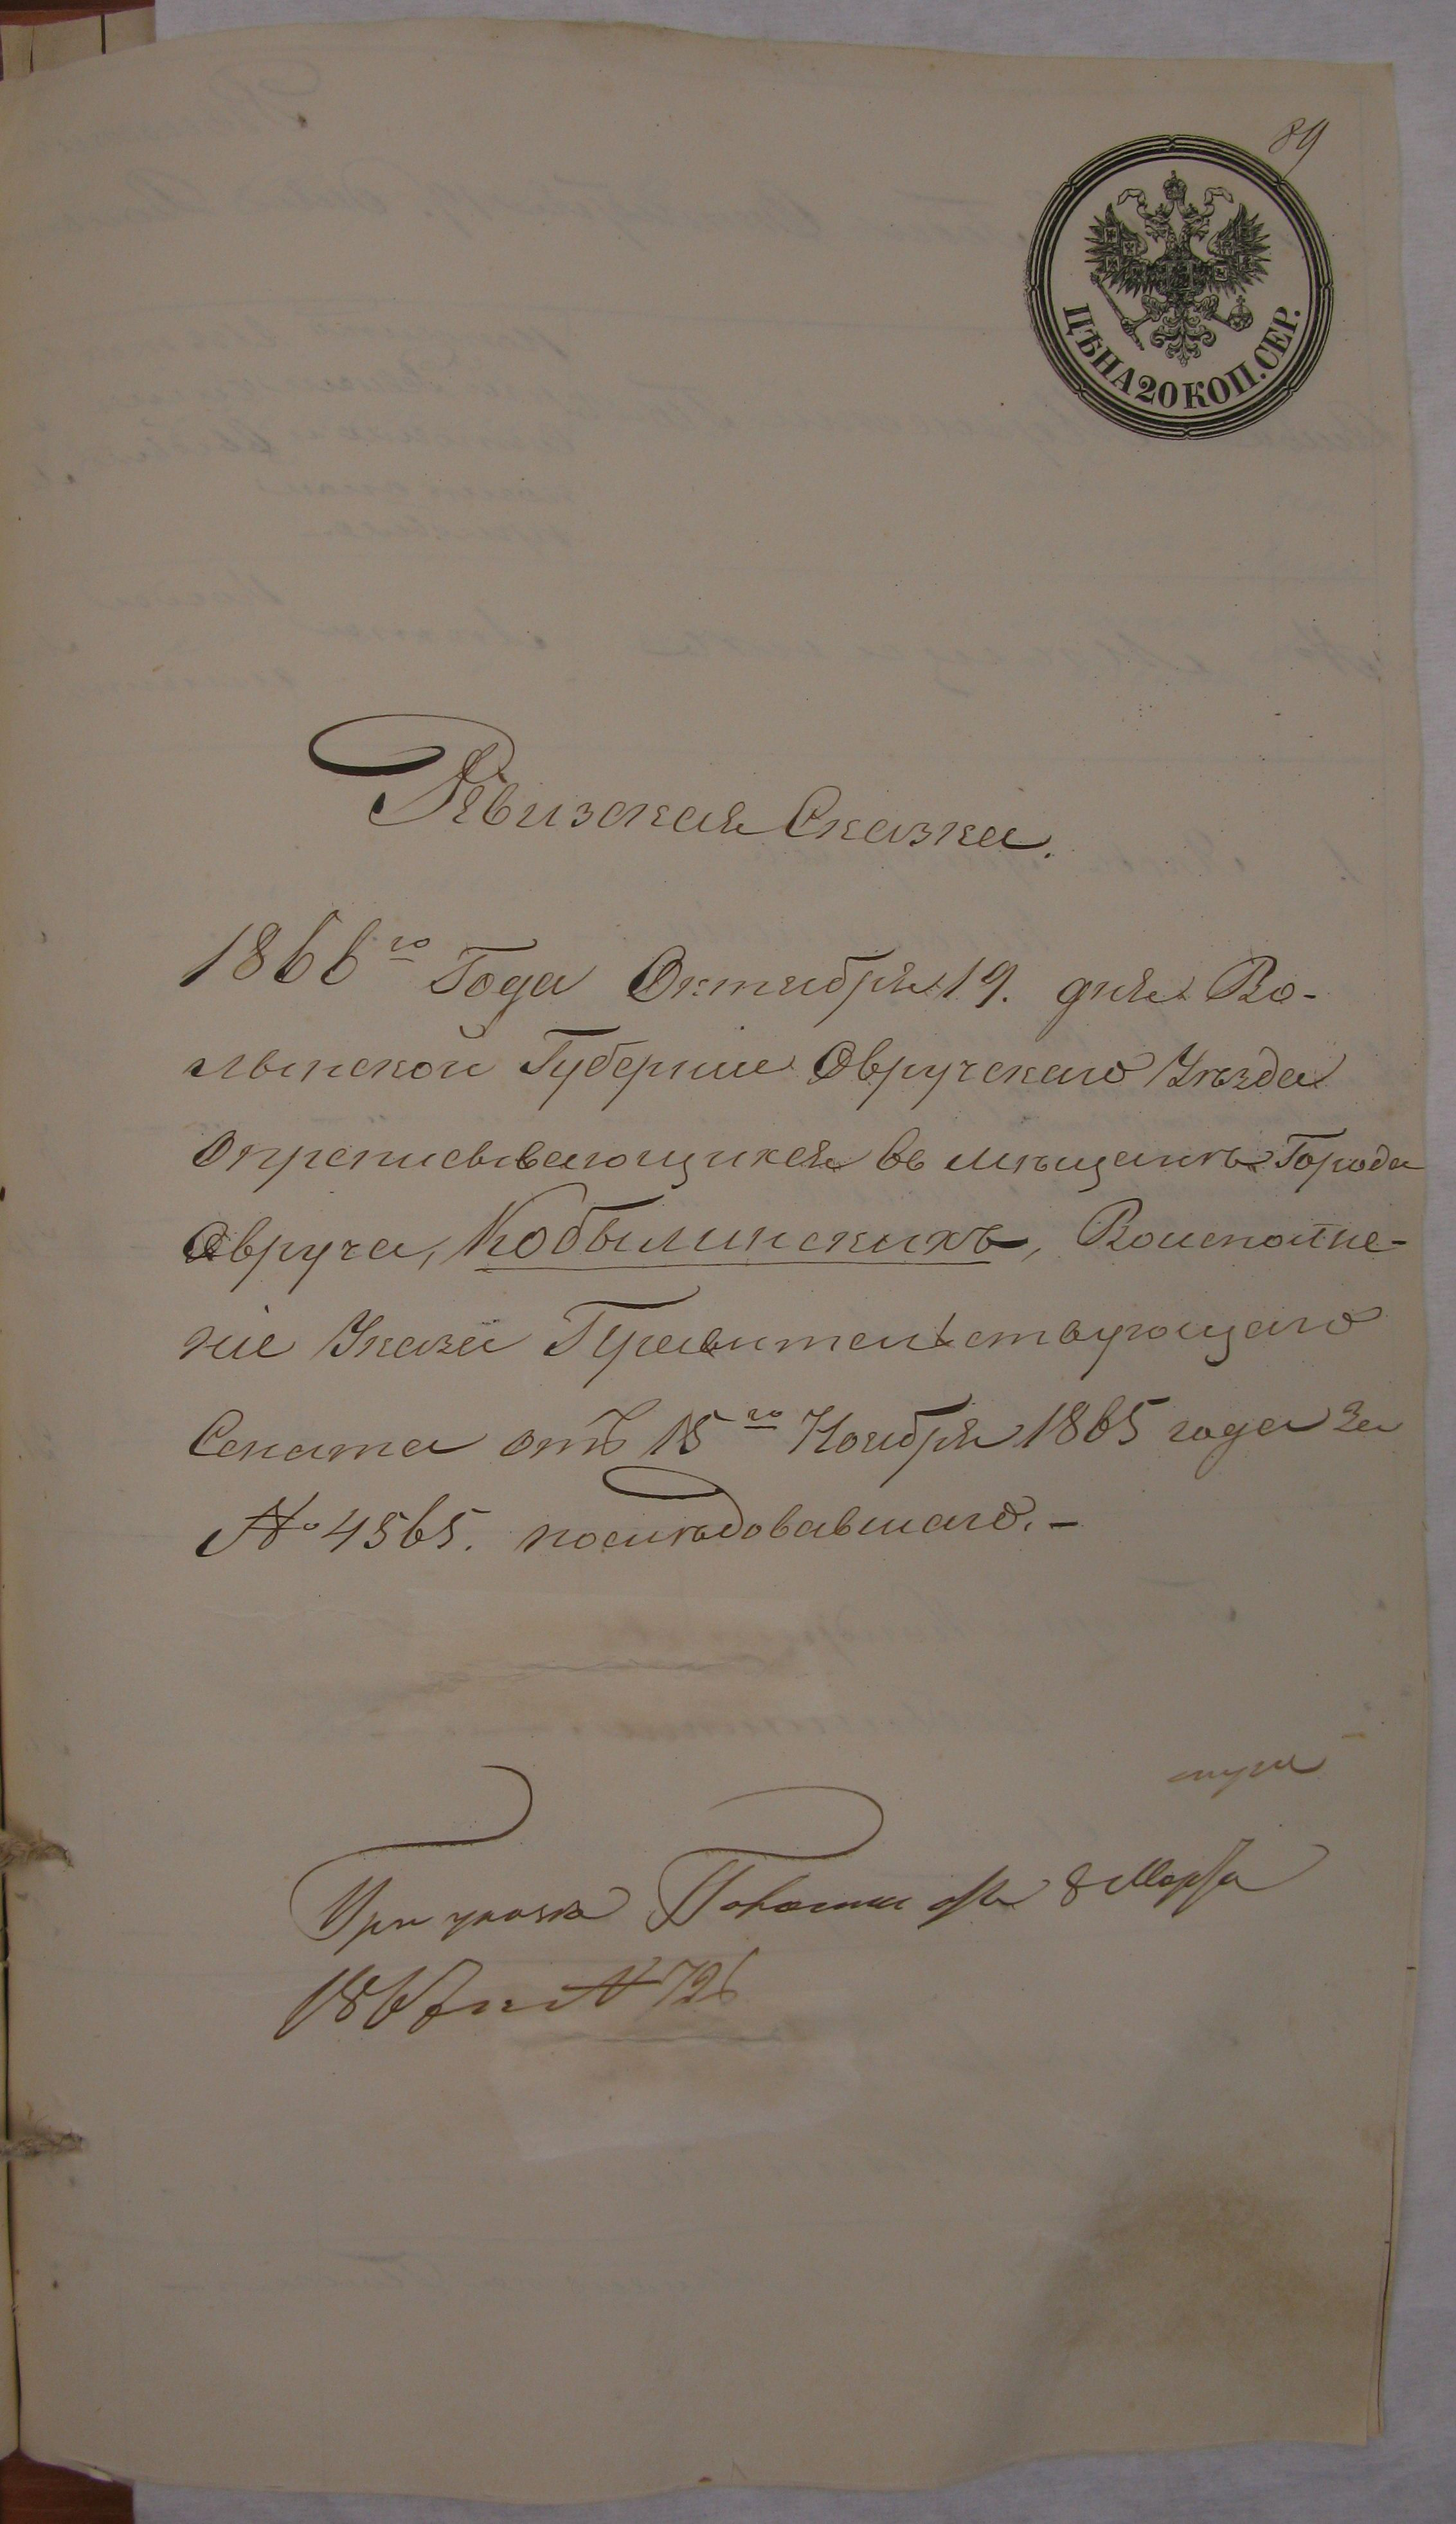 89
ЦѢНА 20 КОП. СЕР.
Ревизская Сказка.
1866го Года Октября 19. дня Во-
лынской Губерніи Овручскаго Уѣзда
О преписывающихся въ мѣщанѣ Города
Овруча, Кобылинскихъ, Воисполне-
ніе Указа Правительствующаго
Сената отъ 15го Ноября 1865 года За
№ 4565. послѣдовавшаго. –
При указѣ Палаты отъ 8 Марта
1867 № 726